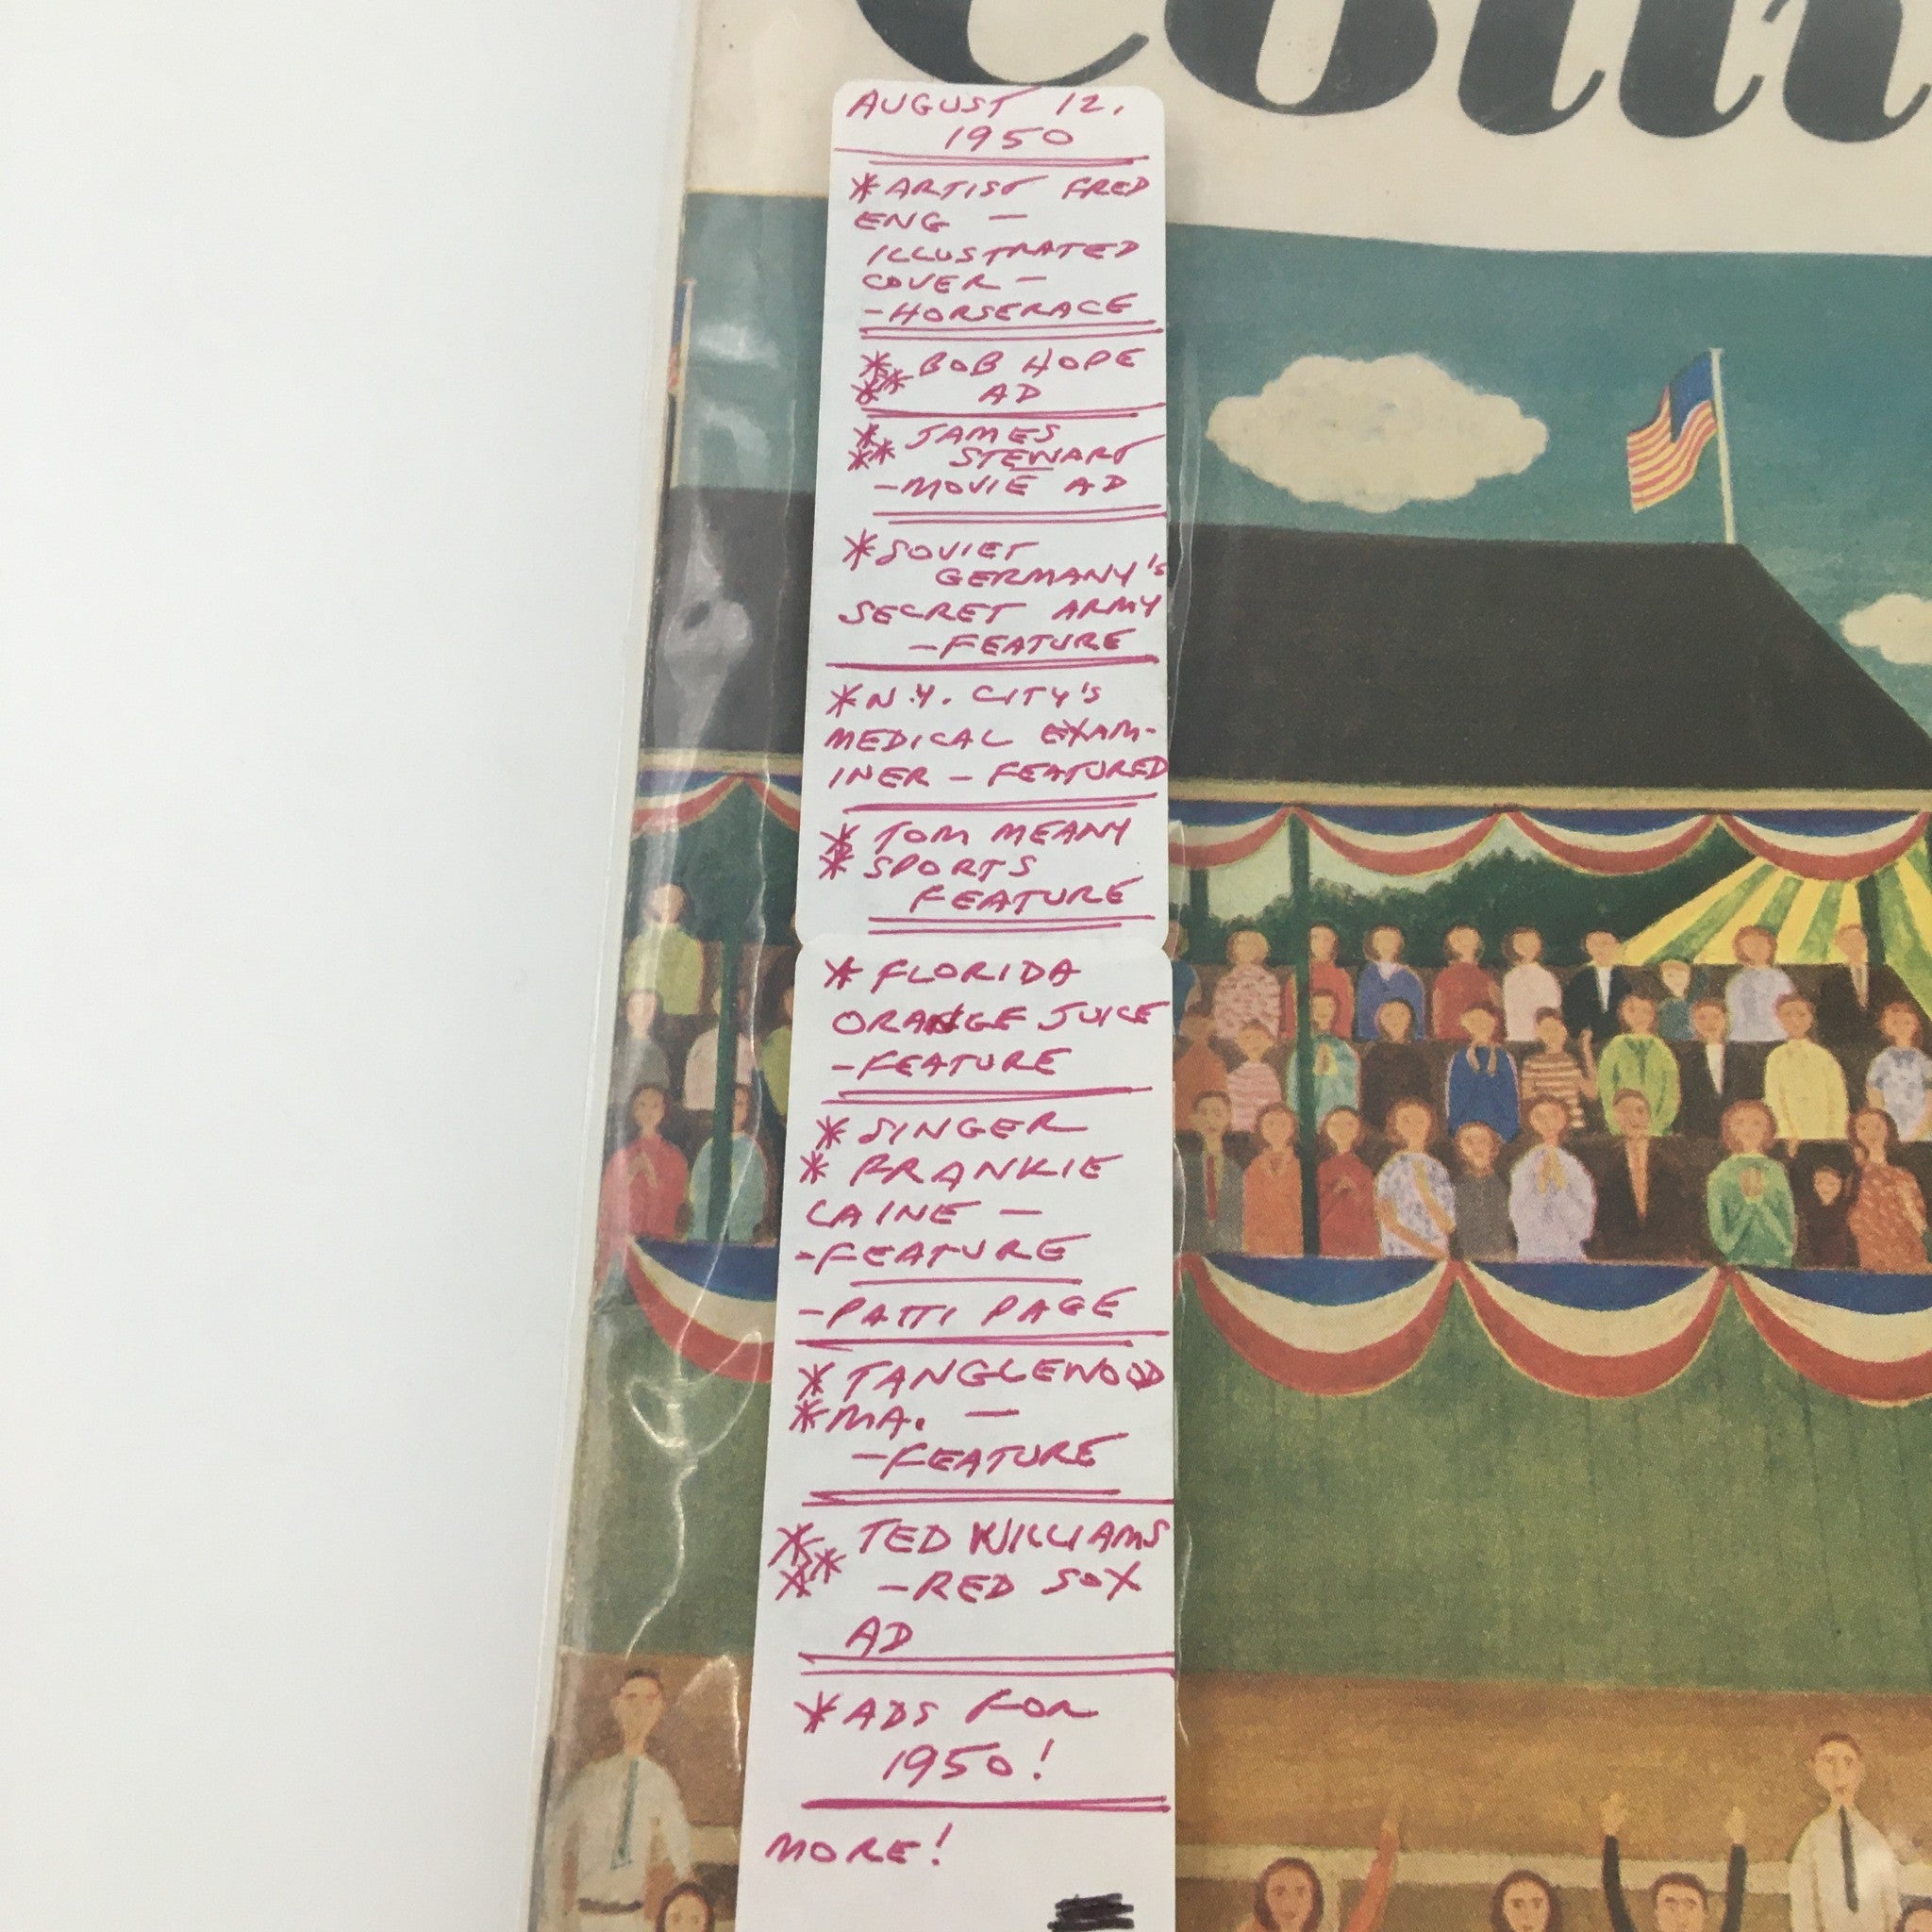 Coll
AUGUST 12,
1950
*ARTIST FRED
ENG —
ILLUSTRATED
COVER —
-HORSERACE
**** BOB HOPE
AD
*** JAMES
STEWART
-MOVIE AD
*SOVIET
GERMANY'S
SECRET ARMY
-FEATURE
*N.Y. CITY'S
MEDICAL EXAM-
INER - FEATURED
* TOM MEANY
* SPORTS
FEATURE
* FLORIDA
ORANGE JUICE
-FEATURE
*SINGER
* FRANKIE
LAINE —
-FEATURE
-PATTI PAGE
*TANGLEWOOD
*MA. —
-FEATURE
*** TED WILLIAMS
-RED SOX
AD
*ADS FOR
1950!
MORE!